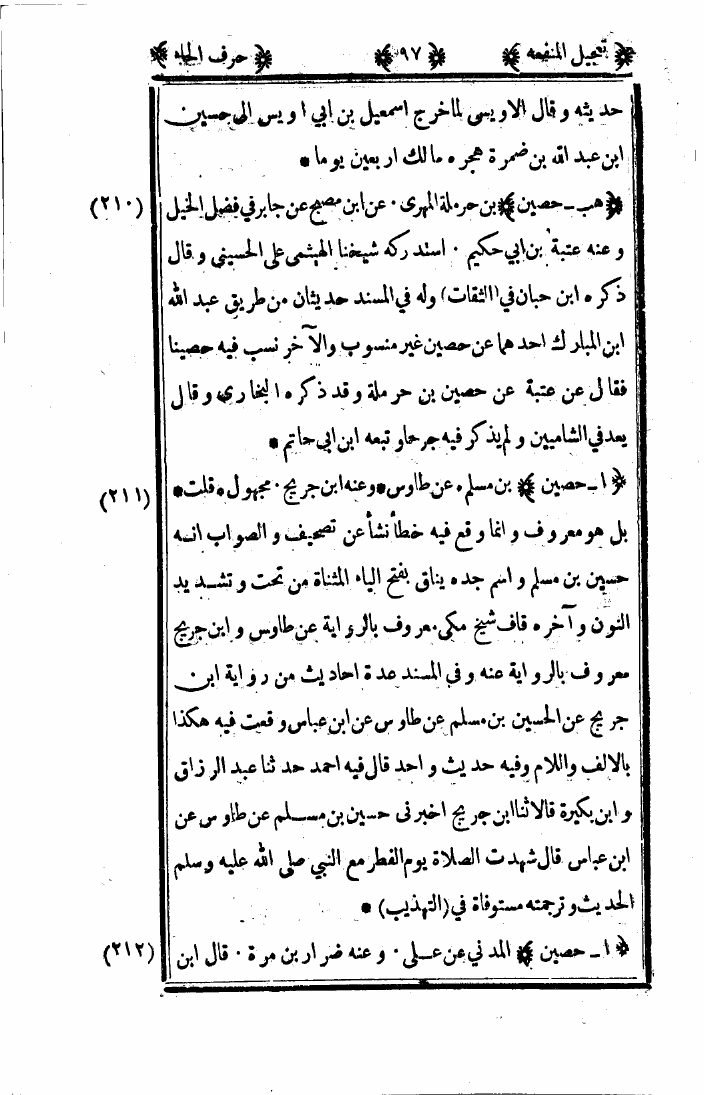 ﴿ تعجيل المنفعه ﴾ ﴿ ٩٧ ﴾ ﴿ حرف الحاء ﴾
حديثه وقال الاويسى لما خرج اسمعيل بن ابي اويس الى حسين
ابن عبد الله بن ضمرة هجره مالك اربعين يوما *
﴿ هب ـ حصين ﴾ بن حرملة المهرى · عن ابن مصبح عن جابر في فضل الخيل (٢١٠)
وعنه عتبة بن ابي حكيم · استدركه شيخنا الهيثمى على الحسينى وقال
ذكره ابن حبان في (الثقات) وله في المسند حديثان من طريق عبد الله
ابن المبارك احدهما عن حصين غير منسوب والآخر نسب فيه حصينا
فقال عن عتبة عن حصين بن حرملة وقد ذكره البخارى وقال
يعد في الشاميين ولم يذكر فيه جرحا وتبعه ابن ابى حاتم *
﴿ ا ـ حصين ﴾ بن مسلم · عن طاوس * وعنه ابن جريج · مجهول * قلت * (٢١١)
بل هو معروف وانما وقع فيه خطأ نشأ عن تصحيف والصواب انه
حسين بن مسلم واسم جده يناق بفتح الياء المثناة من تحت وتشديد
النون وآخره قاف شيخ مكى معروف بالرواية عن طاوس وابن جريج
معروف بالرواية عنه وفي المسند عدة احاديث من رواية ابن
جريج عن الحسين بن مسلم عن طاوس عن ابن عباس وقعت فيه هكذا
بالالف واللام وفيه حديث واحد قال فيه احمد حدثنا عبد الرزاق
وابن بكيرة قالا ثنا ابن جريج اخبرنى حسين بن مسلم عن طاوس عن
ابن عباس قال شهدت الصلاة يوم الفطر مع النبي صلى الله عليه وسلم
الحديث وترجمته مستوفاة في (التهذيب) *
﴿ ا ـ حصين ﴾ المدني عن علي · وعنه ضرار بن مرة · قال ابن (٢١٢)